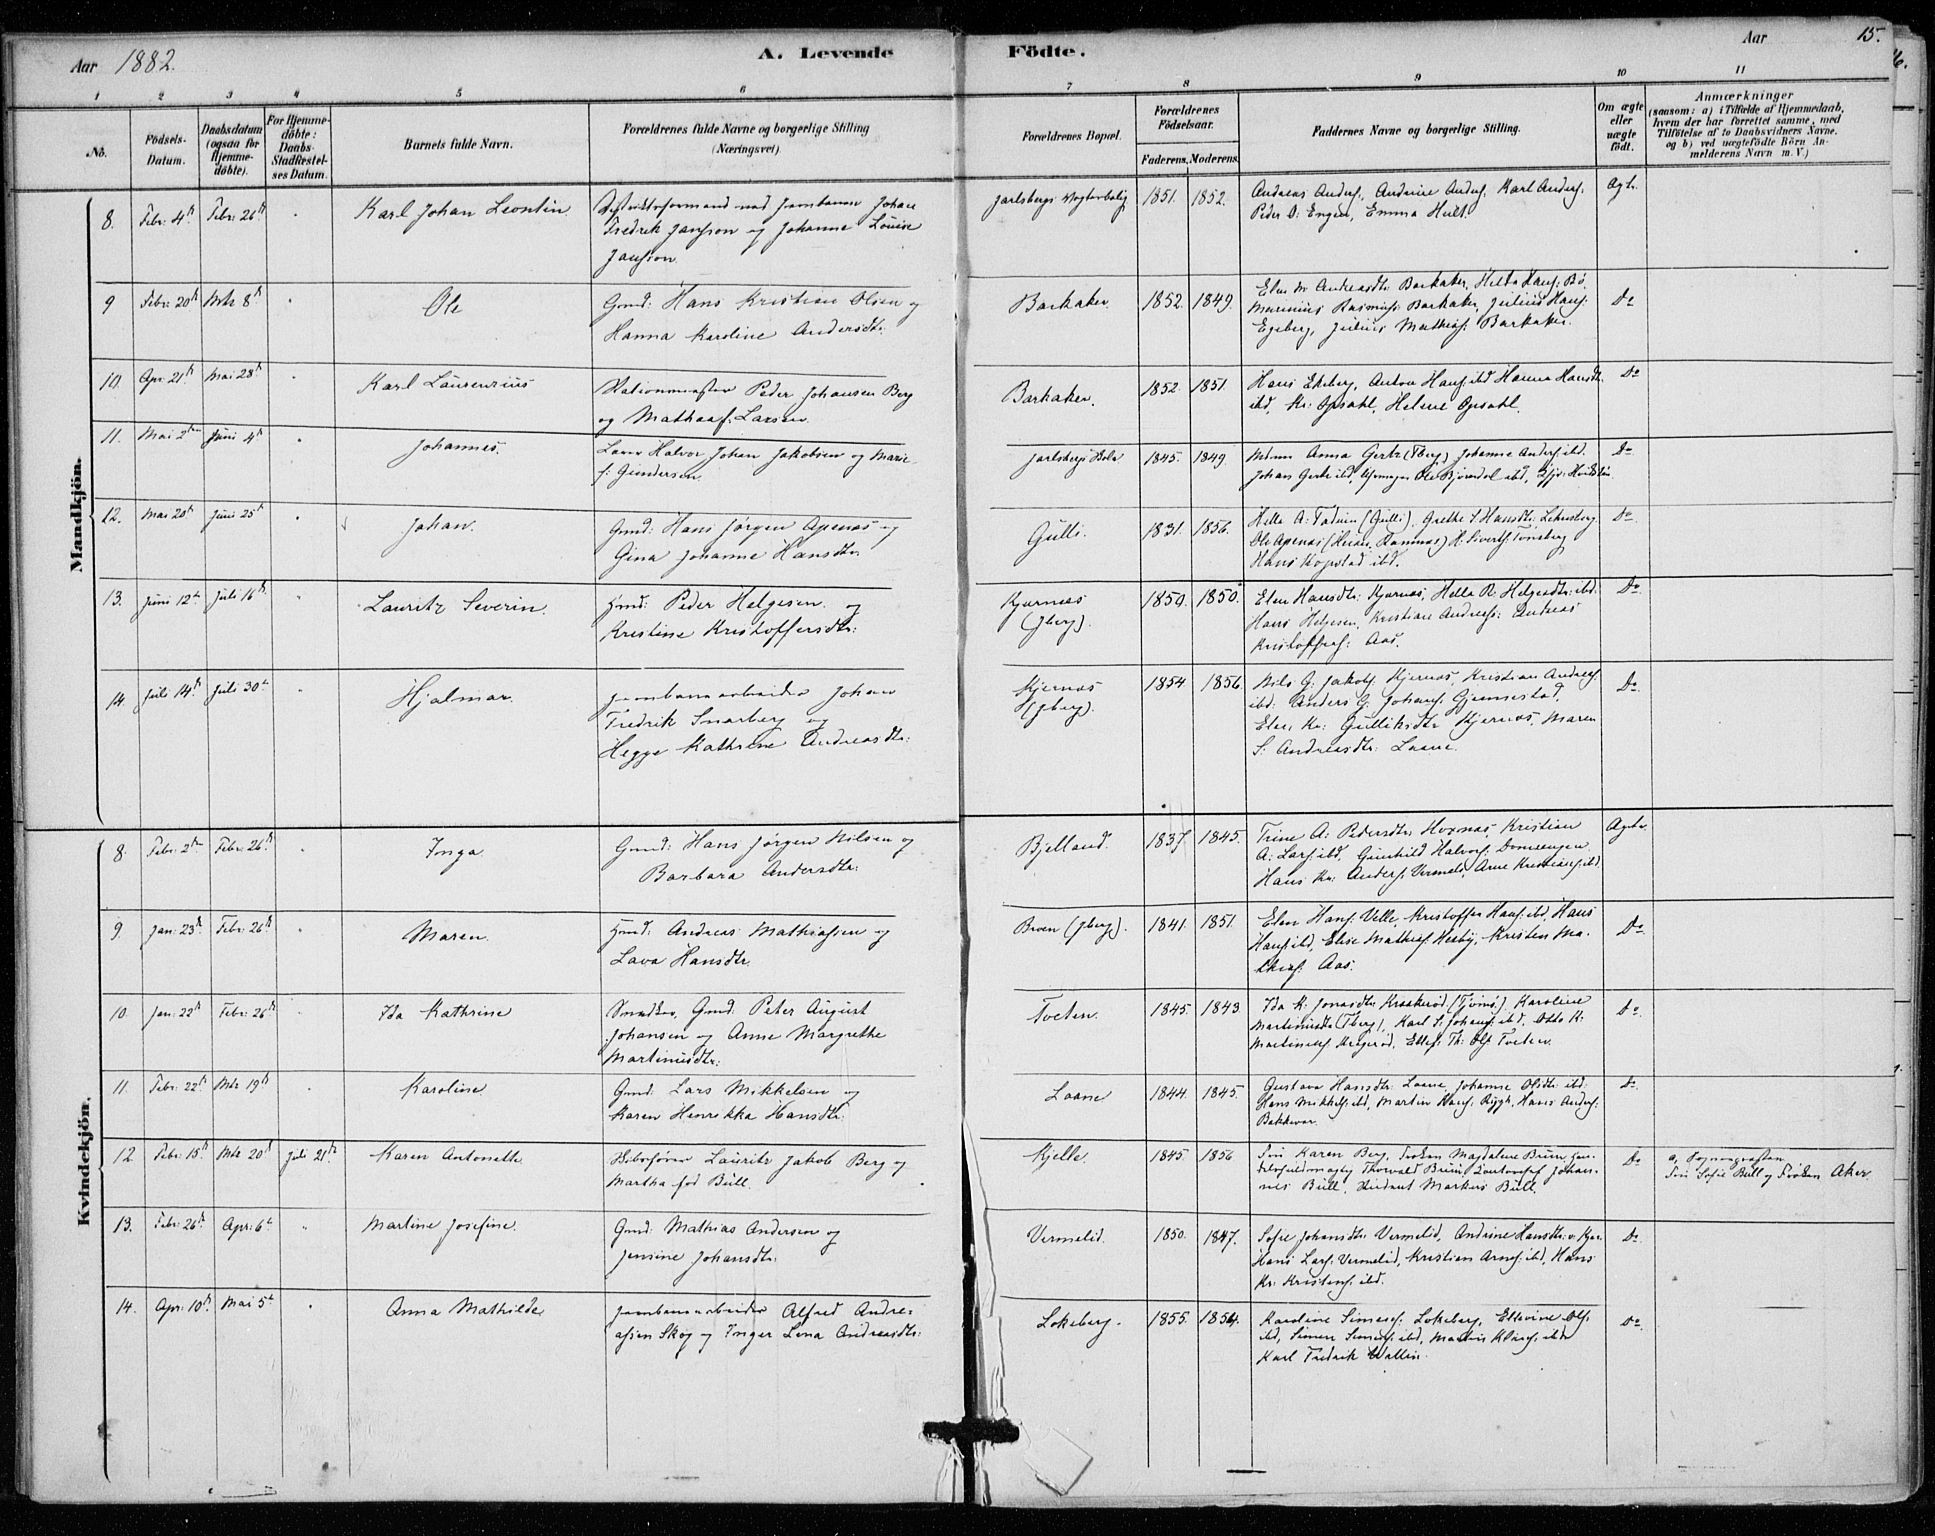 Aar 1882.
A. Levende
Födte.
Aar
15.
1
2
3
4
5
6
7
8
9
10
11
No.
Födsels-
Datum.
Daabsdatum
(ogsaa for
Hjemme-
døbte).
For Hjemme-
døbte:
Daabs-
Stadfæstel-
ses Datum.
Barnets fulde Navn.
Forældrenes fulde Navne og borgerlige Stilling
(Næringsvei)
Forældrenes Bopæl.
Forældrenes
Födselsaar.
Faderens. Moderens.
Faddernes Navne og borgerlige Stilling.
Om ægte
eller
uægte
født.
Anmærkninger
(saasom: a) i Tilfælde af Hjemmedaab,
hvem der har forrettet samme, med
Tilføielse af to Daabsvidners Navne.
og b) ved uægtefødte Börn An-
melderens Navn m. V.)
Mandkjön.
8. Febr: 4de Febr: 26de Karl Johan Leontin
Johan
Fredrik Jansson og Johanne Louise
Jansson
1851. 1852.
Andreas Anders:, Andrine Anders: Karl Anders:
Peder O: Engen, Emma Hult.
Ægte.
9 Febr: 20de Mts 8de Ole
Gmd: Hans Kristian Olsen og
Hanna Karoline Andersdtr:
Barkaker. 1852. 1849.
Elen M: Andreasdtr: Barkaker, Helta Hans: Bø.
Marinius Rasmus: Barkaker, Julius Hans:
Egeberg, Julius Mathias: Barkaker.
Do
10. Apr: 21de Mai 28de Karl Laurenzius
Stationsmester Peder Johansen Berg
og Mathea f: Larsen
Barkaker. 1852. 1851.
Hans Ekeberg, Anton Hans: ibd Hanna Hansdtr:
ibd, Kr: Opsahl, Helene Opsahl.
Do
11. Mai 2den Juni 4de Johannes.
Halvor Johan Jakobsen og Marie
f: Gundersen.
1845. 1849.
Anna Gertz (Tberg) Johanne Anders: ibd.
Do
12. Mai 20de Juni 25de Johan.
Gmd: Hans Jørgen Apenæs og
Gina Johanne Hansdtr.
Gulli. 1831. 1856.
Do
13. Juni 12te Juli 16de Lauritz Severin.
Gmd: Peder Helgesen og
Kristine Kristoffersdtr:
Kjærnæs
(Jberg). 1850. 1850.
Elen Hansdtr: Kjærnæs, Helle R: Helgesdtr: ibd.
Hans Helgesen, Kristian Andreas: Andreas
Kristoffers: Aas.
Do
14. Juli 14de Juli 30te Hjalmar.
Jernbanearbeider Johan
Fredrik Snarberg og
Hegge Kathrine Andreasdtr:
Kjernæs
(Jberg). 1854 1856.
Nils G: Jakobs: Kjernæs, Kristian Andreas:
ibd: Anders G: Johans: Gjennestad,
Elen Kr: Gulliksdtr: Kjernæs, Maren
S: Andreasdtr: Laane.
Do
Kvindekjön.
8. Febr: 2den Febr: 26de Inga.
Gmd: Hans Jørgen Nilsen og
Barbara Andersdtr:
Bjelland. 1837. 1845.
Trine A: Pedersdtr: Hoxnæs, Kristian
A: Lars: ibd. Gunhild Halvors:
Hans Kr: Anders: Vermelid, Arne Kristians: ibd.
Ægte.
9. Jan: 23de Febr: 26de Maren.
Gmd: Andreas Mathiassen og
Lava Hansdtr.
Broen (Jberg). 1841. 1851.
Elen Hans: Velle, Kristoffer Hans: ibd, Hans
Hans: ibd, Elise Mathias: Hesby, Kristen Ma-
thias: Aas.
Do
10. Jan: 22de Febr: 26de Ida Kathrine
Gmd: Peter August
Johansen og Anne Margrethe
Martinusdtr:
Tveten. 1845. 1843.
Ida K: Jonasdtr: Krakerød (Tjømø) Karoline
Martinusdtr (Tberg), Karl S: Johans: ibd, Otto K:
Ellef: Th: Ols: Tveten.
Do
11. Febr: 22de Mts 19de Karoline
Gmd: Lars Mikkelsen og
Karen Henrikka Hansdtr:
Laane 1844. 1845.
Gustava Hansdtr: Laane, Johanne Olsdtr: ibd:
Hans Mikkels: ibd, Martin Hans: Rygh, Hans Anders:
Bakkevar.
Do
12 Febr: 15de Mts 20de Juli 21de Karen Antonette
Skibsfører Lauritz Jakob Berg og
Martha fød Bull.
Kjelle. 1845. 1856
Fru Karen Berg, Frøken Magdalene Bruun,
Thorvald Bruun, Johan-
nes Bull, Student Markus Bull.
Do
Fru Sofie Bull og Frøken Aker.
13. Febr: 26de Apr: 6te Martine Josefine.
Gmd: Mathias Andersen og
Jensine Johansdtr:
Vermelid. 1850. 1847.
Sofie Johansdtr: Vermelid, Andrine Hansdtr:
Hans Lars: Vermelid, Kristian Arnes: ibd, Hans
Kr: Kristens: ibd.
Do
14. Apr: 10de Mai 5te Anna Mathilde
Jernbanearbeider Alfred Andre-
assen Skog og Inger Lena Andreasdtr:
Lokeberg. 1855. 1854.
Karoline Simens: Lokeberg, Ols:
ibd, Simen Simens: ibd,
Karl Fredrik Wallin.
Do